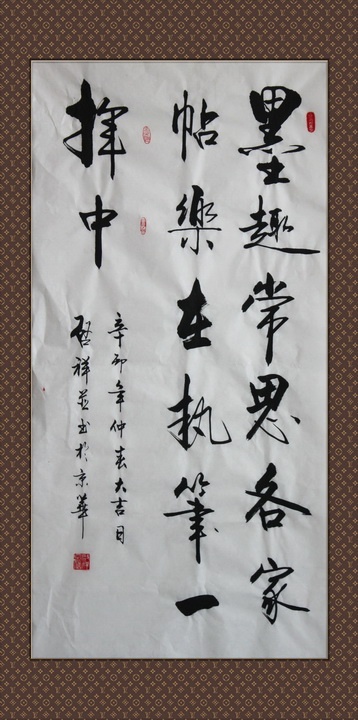 墨趣常思各家
帖樂在执筆一
揮中
辛卯年仲春大吉日
啓祥并书於京華